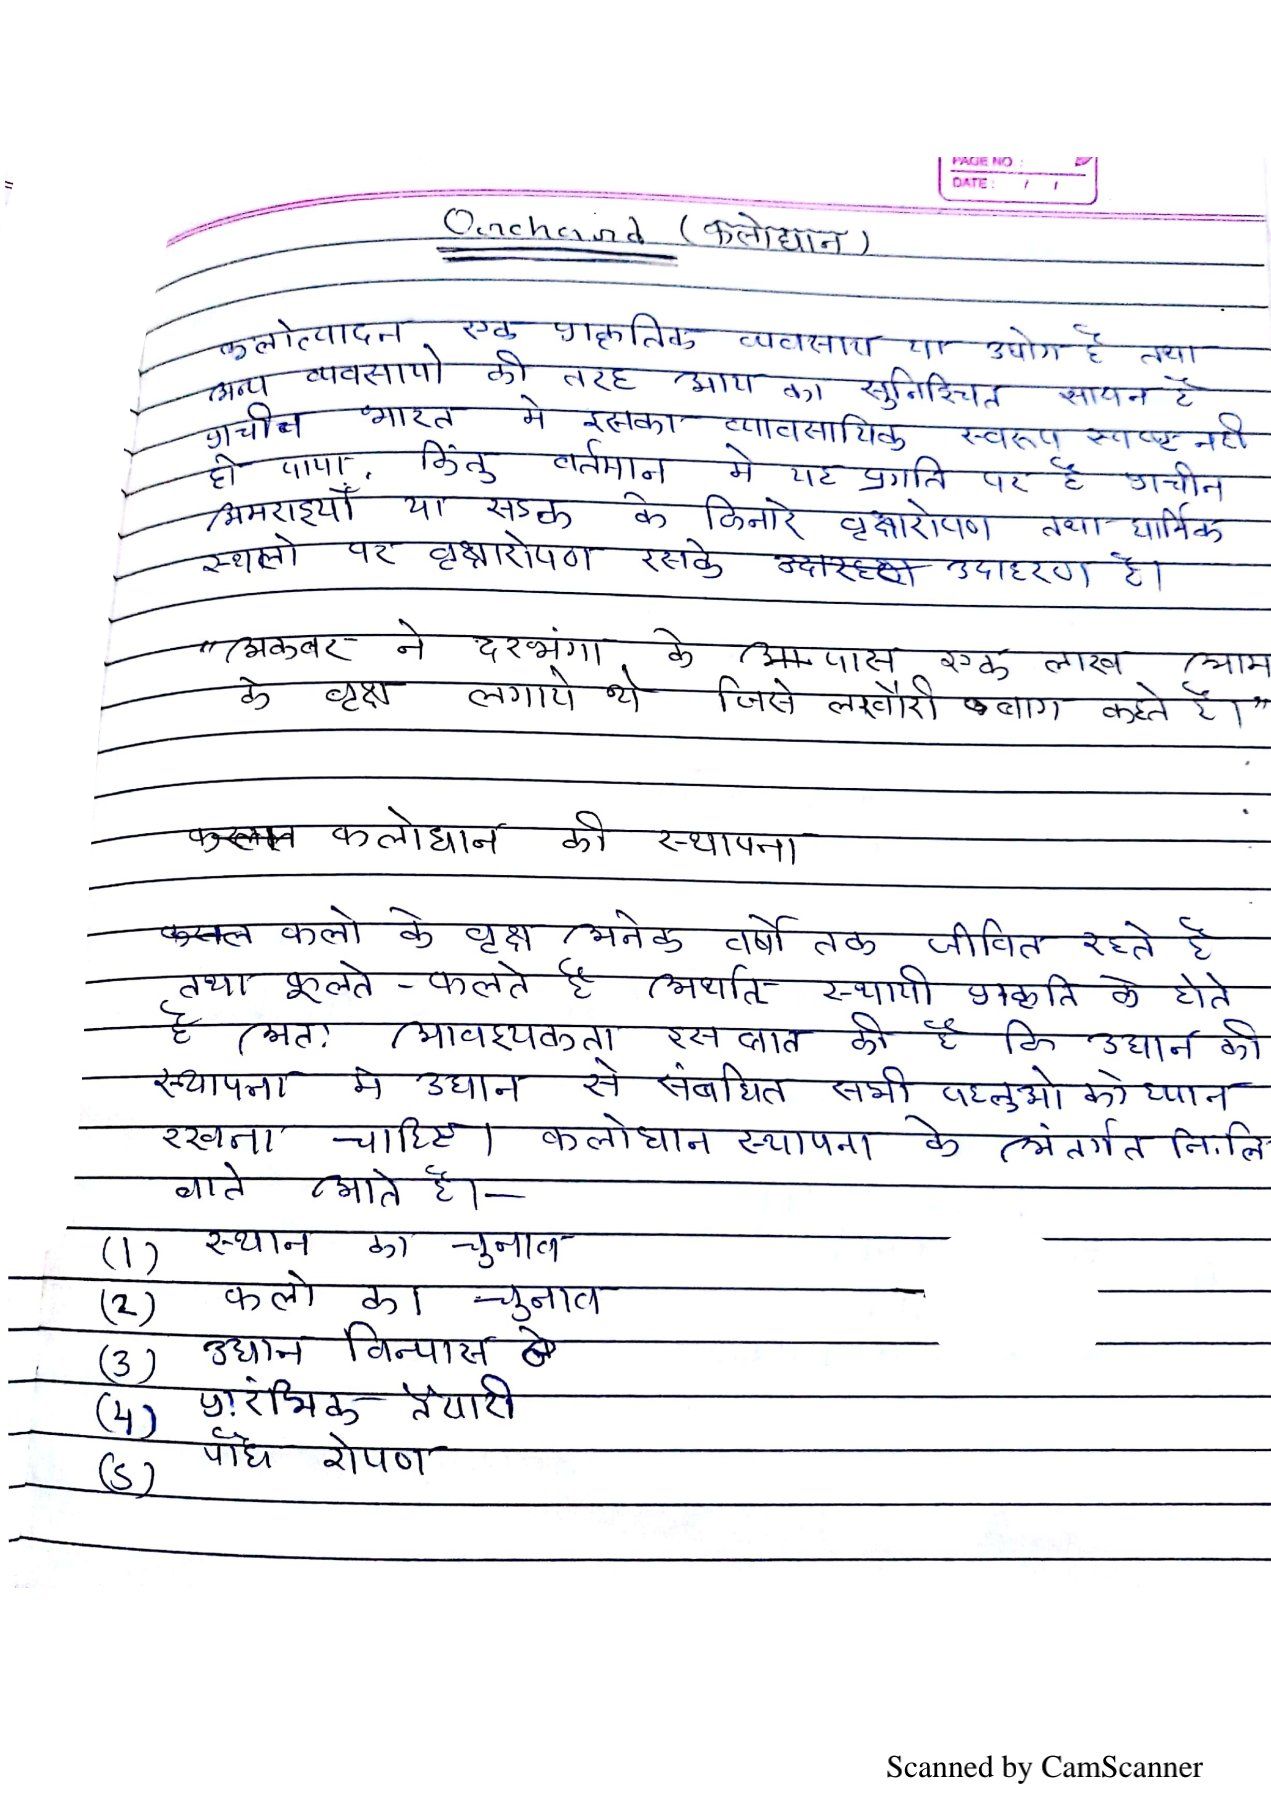 PAGE NO :
DATE : / /
Orchard (फलोद्यान)
फलोत्पादन एक प्राकृतिक व्यवसाय या उद्योग है तथा
अन्य व्यवसायो की तरह आय का सुनिश्चित साधन है
प्राचीन भारत मे इसका व्यावसायिक स्वरूप स्पष्ट नही
हो पाया, किंतु वर्तमान मे यह प्रगति पर है प्राचीन
अमराइयाँ या सडक के किनारे वृक्षारोपण तथा धार्मिक
स्थलो पर वृक्षारोपण इसके उदाहरण है।
"अकबर ने दरभंगा के पास एक लाख आम
के वृक्ष लगाये थे जिसे लखौरी बाग कहते है।"
फलोद्यान की स्थापना
फलो के वृक्ष अनेक वर्षो तक जीवित रहते है
तथा फूलते - फलते है अर्थात स्थायी प्रकृति के होते
है अत: आवश्यकता इस बात की है कि उद्यान की
स्थापना मे उद्यान से संबधित सभी पहलुओ को ध्यान
रखना चाहिए। फलोद्यान स्थापना के अंतर्गत नि.लि
बाते आते है।-
(1) स्थान का चुनाव
(2) फलो का चुनाव
(3) उद्यान विन्यास
(4) प्रारंभिक तैयारी
(5) पौध रोपण
Scanned by CamScanner